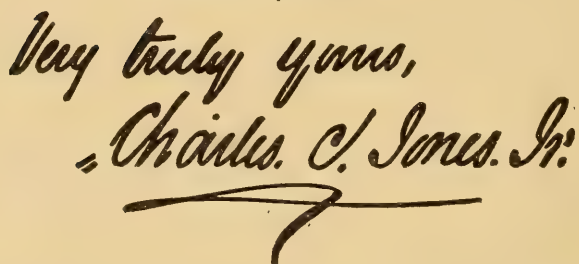 Very truly yours,
Charles. C. Jones. Jr.